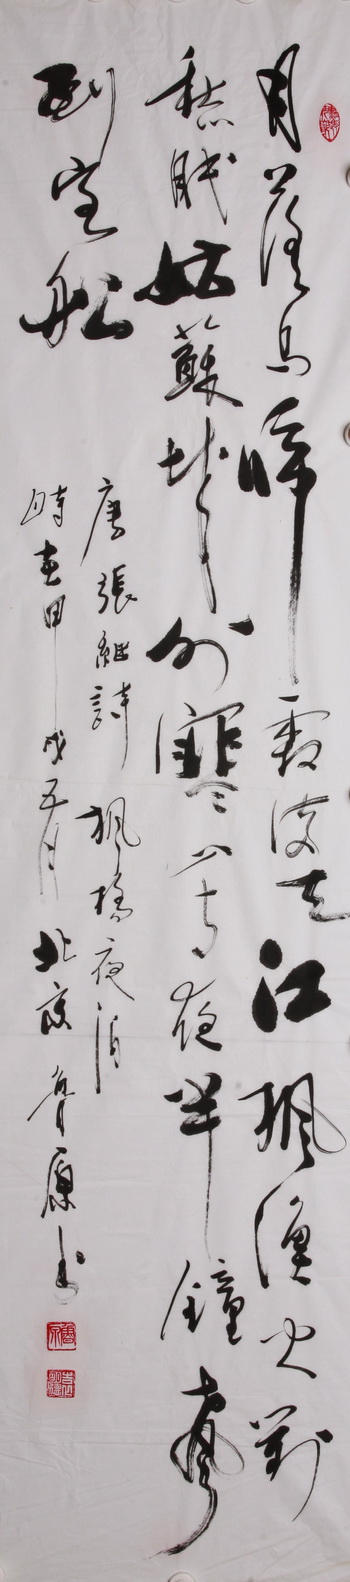 月落烏啼霜滿天江楓漁火對
愁眠姑蘇城外寒山寺夜半鐘聲
到客船
唐張繼詩楓橋夜泊
時在甲戌五月北京魯原书